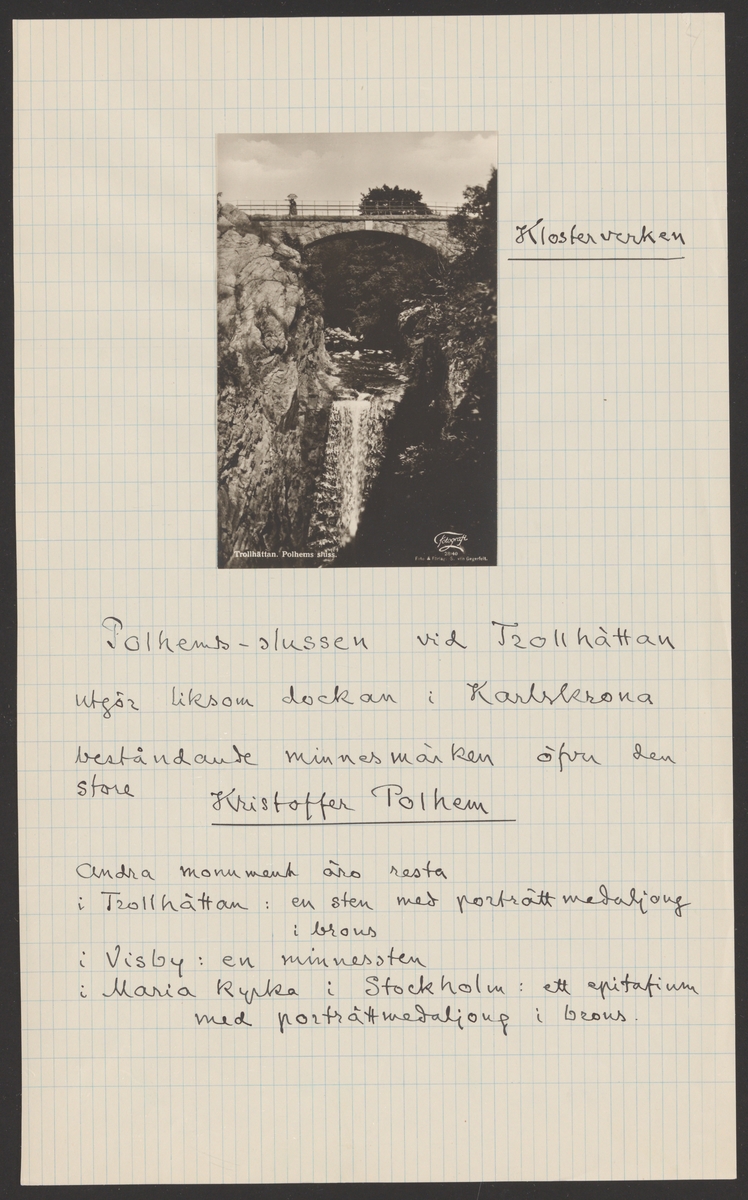 Klosterverken
Trollhättan. Polhems sluss.
Fotografi
Polhems-slussen vid Trollhättan
utgör liksom dockan i Karlskrona
beståndande minnesmärken öfver den
store Kristoffer Polhem
Andra monument äro resta
i Trollhättan : en sten med porträttmedaljong
i brons
i Visby : en minnessten
i Maria Kyrka i Stockholm : ett epitafium
med porträttmedaljong i brons.